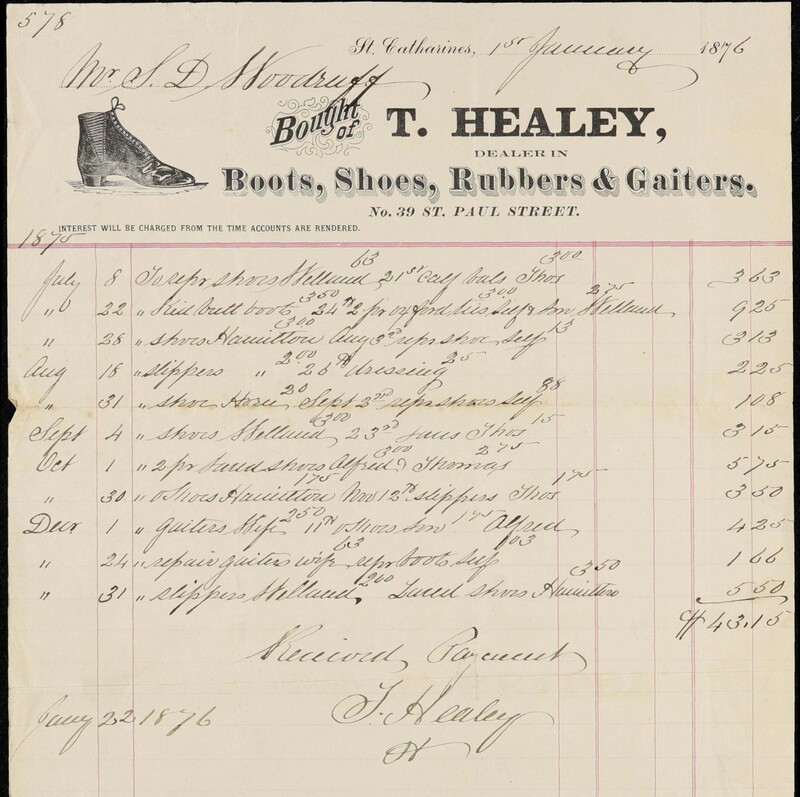 578
St. Catharines, 1st January 1876
Mr S. D. Woodruff
Bought of T. HEALEY,
DEALER IN
Boots, Shoes, Rubbers & Gaiters.
No. 39 ST. PAUL STREET.
INTEREST WILL BE CHARGED FROM THE TIME ACCOUNTS ARE RENDERED.
1875
July 8 To repr shoes Welland 63 21st calf bals Thos 300 363
" 22 " Kid butt boots 350 24th 2 pr oxford ties self & 300 Welland 275 925
" 28 " shoes Hamilton 300 Aug 3rd repr shoe self 13 313
Aug 18 " slippers " 200 26th dressing 25 225
" 31 " shoe Horn 20 Sept 3rd repr shoes self 88 108
Sept 4 " shoes Welland 300 23rd Thos 15 315
Oct 1 " 2 pr Laced shoes Alfred 300 & Thomas 275 575
" 30 " oShoes Hamilton 175 Nov 12th slippers Thos 175 350
Decr 1 " gaiters Wife 250 11th oShoes 175 Alfred 425
" 24 " repair gaiters wife 63 repr boots self 103 166
" 31 " slippers Welland 200 Laced shoes Hamilton 350 550
$43.15
Received Payment
Jany 22 1876 T. Healey
H